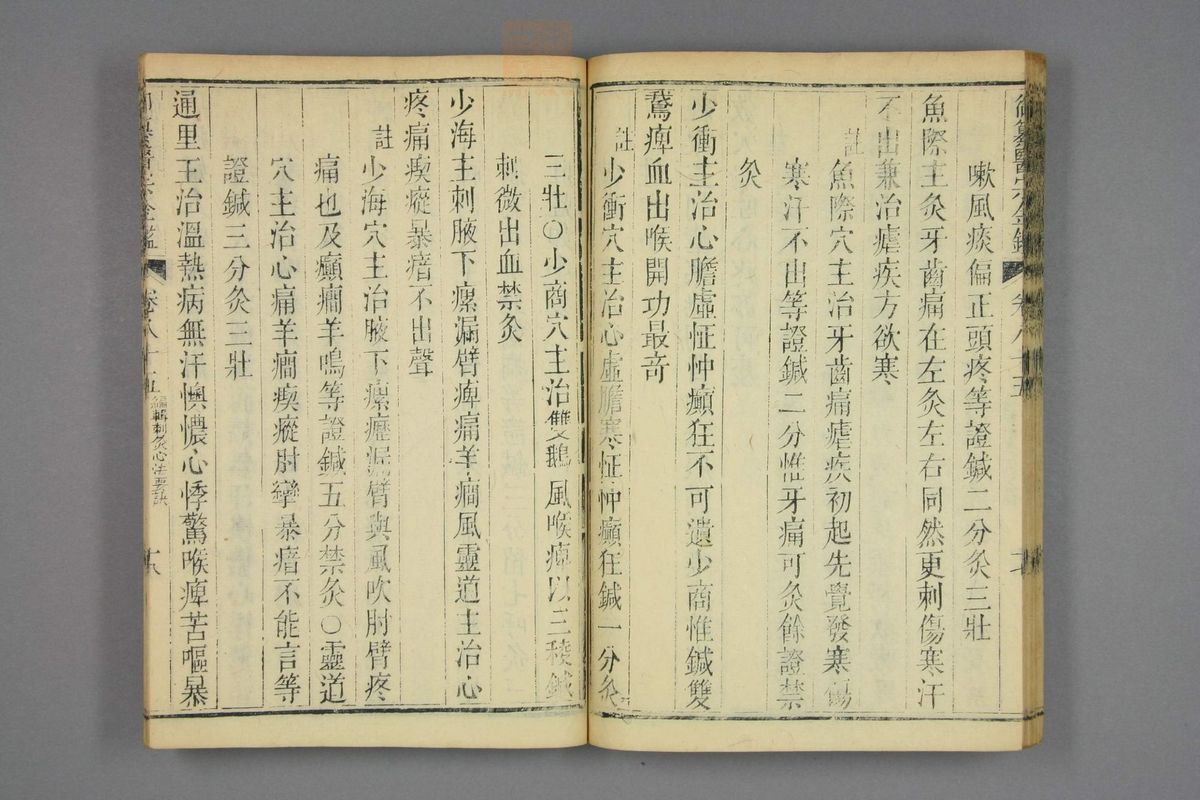 御纂醫宗金鑑 卷八十五
嗽風痰偏正頭疼等證鍼二分灸三壯
魚際主灸牙齒痛在左灸左右同然更刺傷寒汗
不出兼治瘧疾方欲寒
註 魚際穴主治牙齒痛瘧疾初起先覺發寒傷
寒汗不出等證鍼二分惟牙痛可灸餘證禁
灸
少衝主治心膽虛怔忡癲狂不可遺少商惟鍼雙
鵞痺血出喉開功最奇
註 少衝穴主治心虛膽寒怔忡癲狂鍼一分灸
三壯○少商穴主治雙鵝風喉痺以三稜鍼
刺微出血禁灸
少海主刺腋下瘰漏臂痺痛羊癎風靈道主治心
疼痛瘈瘲暴瘖不出聲
註 少海穴主治腋下瘰癧漏臂與風吹肘臂疼
痛也及癲癎羊鳴等證鍼五分禁灸○靈道
穴主治心痛羊癎瘈瘲肘攣暴瘖不能言等
證鍼三分灸三壯
通里主治溫熱病無汗懊憹心悸驚喉痺苦嘔暴
卷八十五 編輯刺灸心法要訣 十八